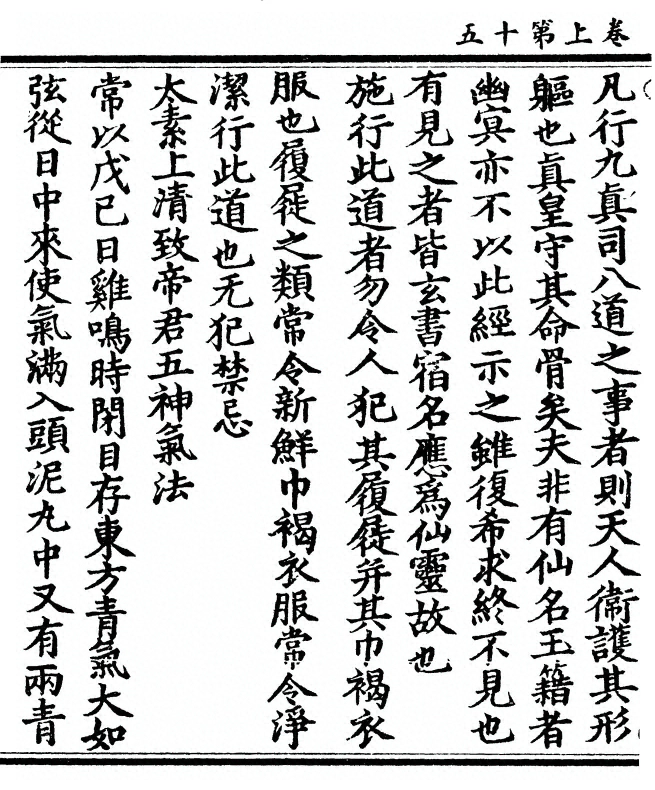 卷上第十五
凡行九真司八道之事者則天人衛護其形
軀也真皇守其命骨矣夫非有仙名玉籍者
幽冥亦不以此經示之雖復希求終不見也
有見之者皆玄書宿名應為仙靈故也
施行此道者勿令人犯其履屣并其巾褐衣
服也履屣之類常令新鮮巾褐衣服常令淨
潔行此道也无犯禁忌
太素上清致帝君五神氣法
常以戊己日雞鳴時閉目存東方青氣大如
弦從日中來使氣滿入頭泥丸中又有兩青